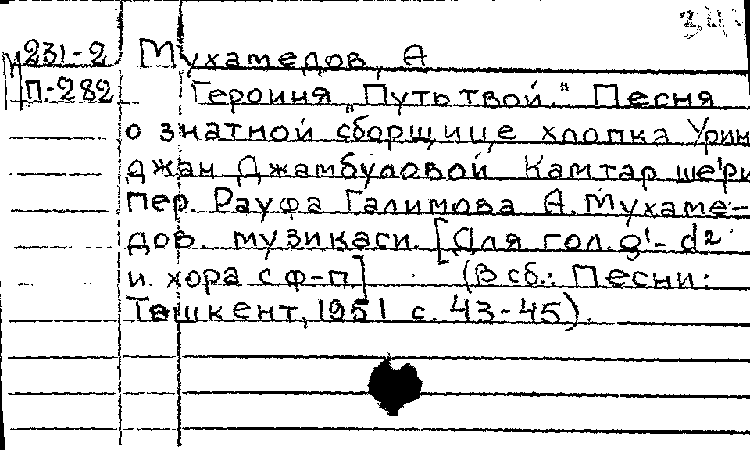 34
М231-2 Мухамедов, А
П-282 Героиня „Путь твой." Песня
о знатной сборщице хлопка Урин
джан Джамбуловой Камтар ше'ри
пер. Рауфа Галимова А. Мухаме-
дов. музикаси. [Для гол. g'- d2
и. хора с ф-п.] (В сб.: Песни:
Ташкент, 1951 с. 43-45).